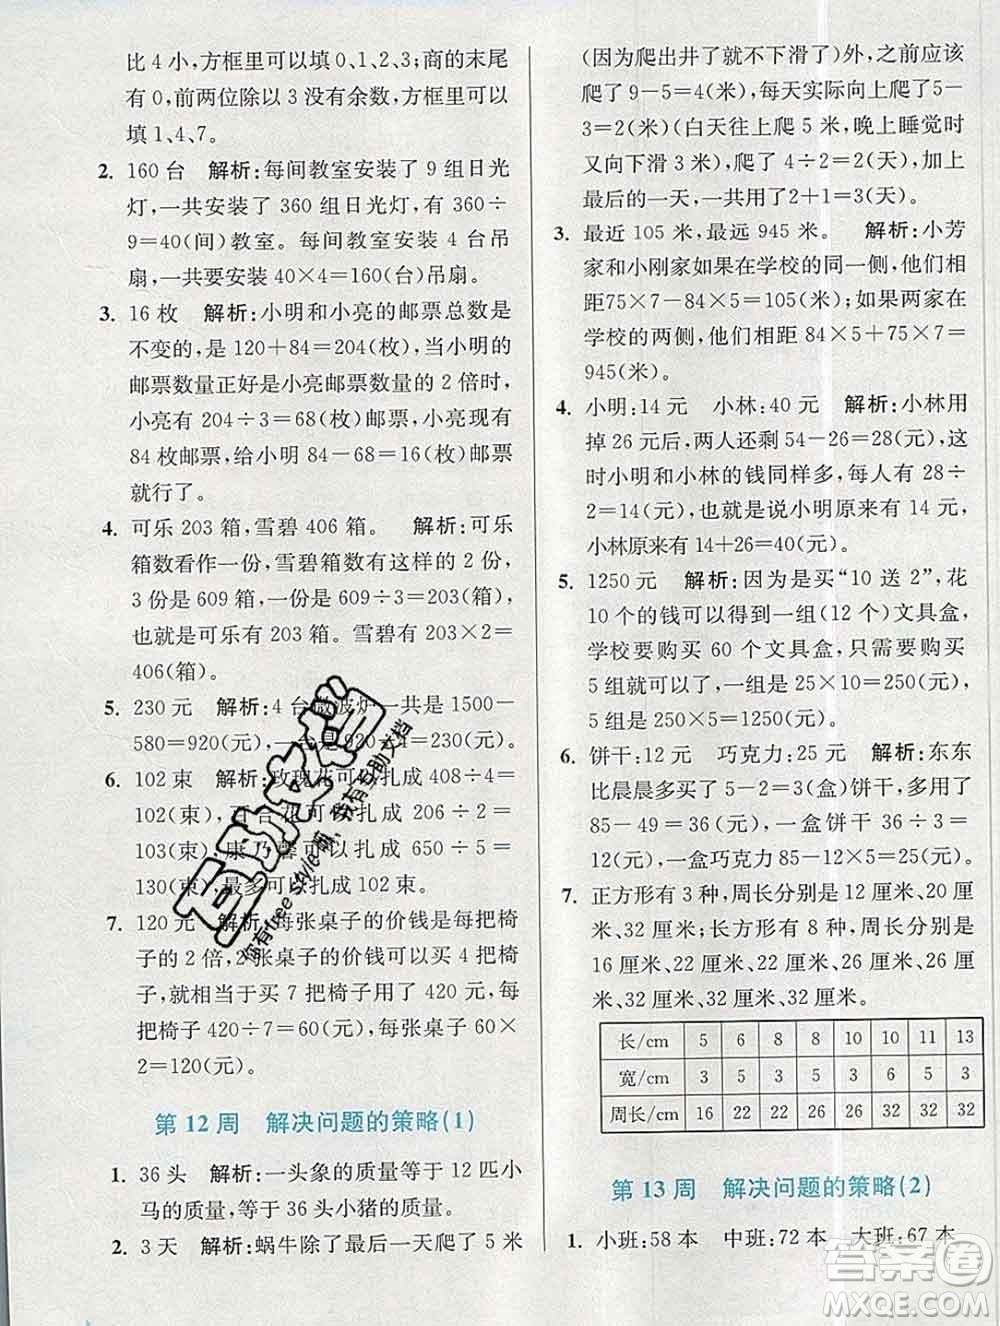 比 4 小,方框里可以填 0、1、2、3;商的末尾
有 0,前两位除以 3 没有余数,方框里可以
填 1、4、7。
2. 160 台 解析:每间教室安装了 9 组日光
灯,一共安装了 360 组日光灯,有 360÷
9=40(间)教室。每间教室安装 4 台吊
扇,一共要安装 40×4=160(台)吊扇。
3. 16 枚 解析:小明和小亮的邮票总数是
不变的,是 120+84=204(枚),当小明的
邮票数量正好是小亮邮票数量的 2 倍时,
小亮有 204÷3=68(枚)邮票,小亮现有
84 枚邮票,给小明 84-68=16(枚)邮票
就行了。
4. 可乐 203 箱,雪碧 406 箱。 解析:可乐
箱数看作一份,雪碧箱数有这样的 2 份,
3 份是 609 箱,一份是 609÷3=203(箱),
也就是可乐有 203 箱。雪碧有 203×2=
406(箱)。
5. 230 元 解析:4 台微波炉一共是 1500-
580=920(元),一台是 920÷4=230(元)。
6. 102 束 解析:玫瑰花可以扎成 408÷4=
102(束),百合花可以扎成 206÷2=
103(束),康乃馨可以扎成 650÷5=
130(束),最多可以扎成 102 束。
7. 120 元 解析:每张桌子的价钱是每把椅
子的 2 倍,2 张桌子的价钱相当于 4 把椅
子,就相当于买 7 把椅子用了 420 元,每
把椅子 420÷7=60(元),每张桌子 60×
2=120(元)。
第 12 周 解决问题的策略(1)
1. 36 头 解析:一头象的质量等于 12 匹小
马的质量,等于 36 头小猪的质量。
2. 3 天 解析:蜗牛除了最后一天爬了 5 米
(因为爬出井了就不下滑了)外,之前应该
爬了 9-5=4(米),每天实际向上爬 5-
3=2(米)(白天往上爬 5 米,晚上睡觉时
又向下滑 3 米),爬了 4÷2=2(天),加上
最后的一天,一共用了2+1=3(天)。
3. 最近 105 米,最远 945 米。 解析:小芳
家和小刚家如果在学校的同一侧,他们相
距75×7-84×5=105(米);如果两家在
学校的两侧,他们相距 84×5+75×7=
945(米)。
4. 小明:14 元 小林:40 元 解析:小林用
掉 26 元后,两人还剩 54-26=28(元),这
时小明和小林的钱同样多,每人有 28÷
2=14(元),说明小明原来有 14 元,
小林原来有 14+26=40(元)。
5. 1250 元 解析:因为是买“10 送 2”,花
10 个的钱可以得到一组(12 个)文具盒,
学校要购买 60 个文具盒,只需要购买
5 组就可以了,一组是 25×10=250(元),
5 组是 250×5=1250(元)。
6. 饼干:12 元 巧克力:25 元 解析:东东
比晨晨多买了 5-2=3(盒)饼干,多用了
85-49=36(元),一盒饼干 36÷3=
12(元),一盒巧克力 85-12×5=25(元)。
7. 正方形有 3 种,周长分别是 12 厘米、20 厘
米、32 厘米;长方形有 8 种,周长分别是
16 厘米、22 厘米、22 厘米、22 厘米、26 厘
米、32 厘米、32 厘米、32 厘米。
长/cm 5 6 8 8 10 11 13
宽/cm 3 5 3 5 3 5 3
周长/cm 16 22 22 26 26 32 32
第 13 周 解决问题的策略(2)
1. 小班:58 本 中班:72 本 大班:67 本
互助文档
你有free style萌,我有互助文档
答案圈
MXQE.COM